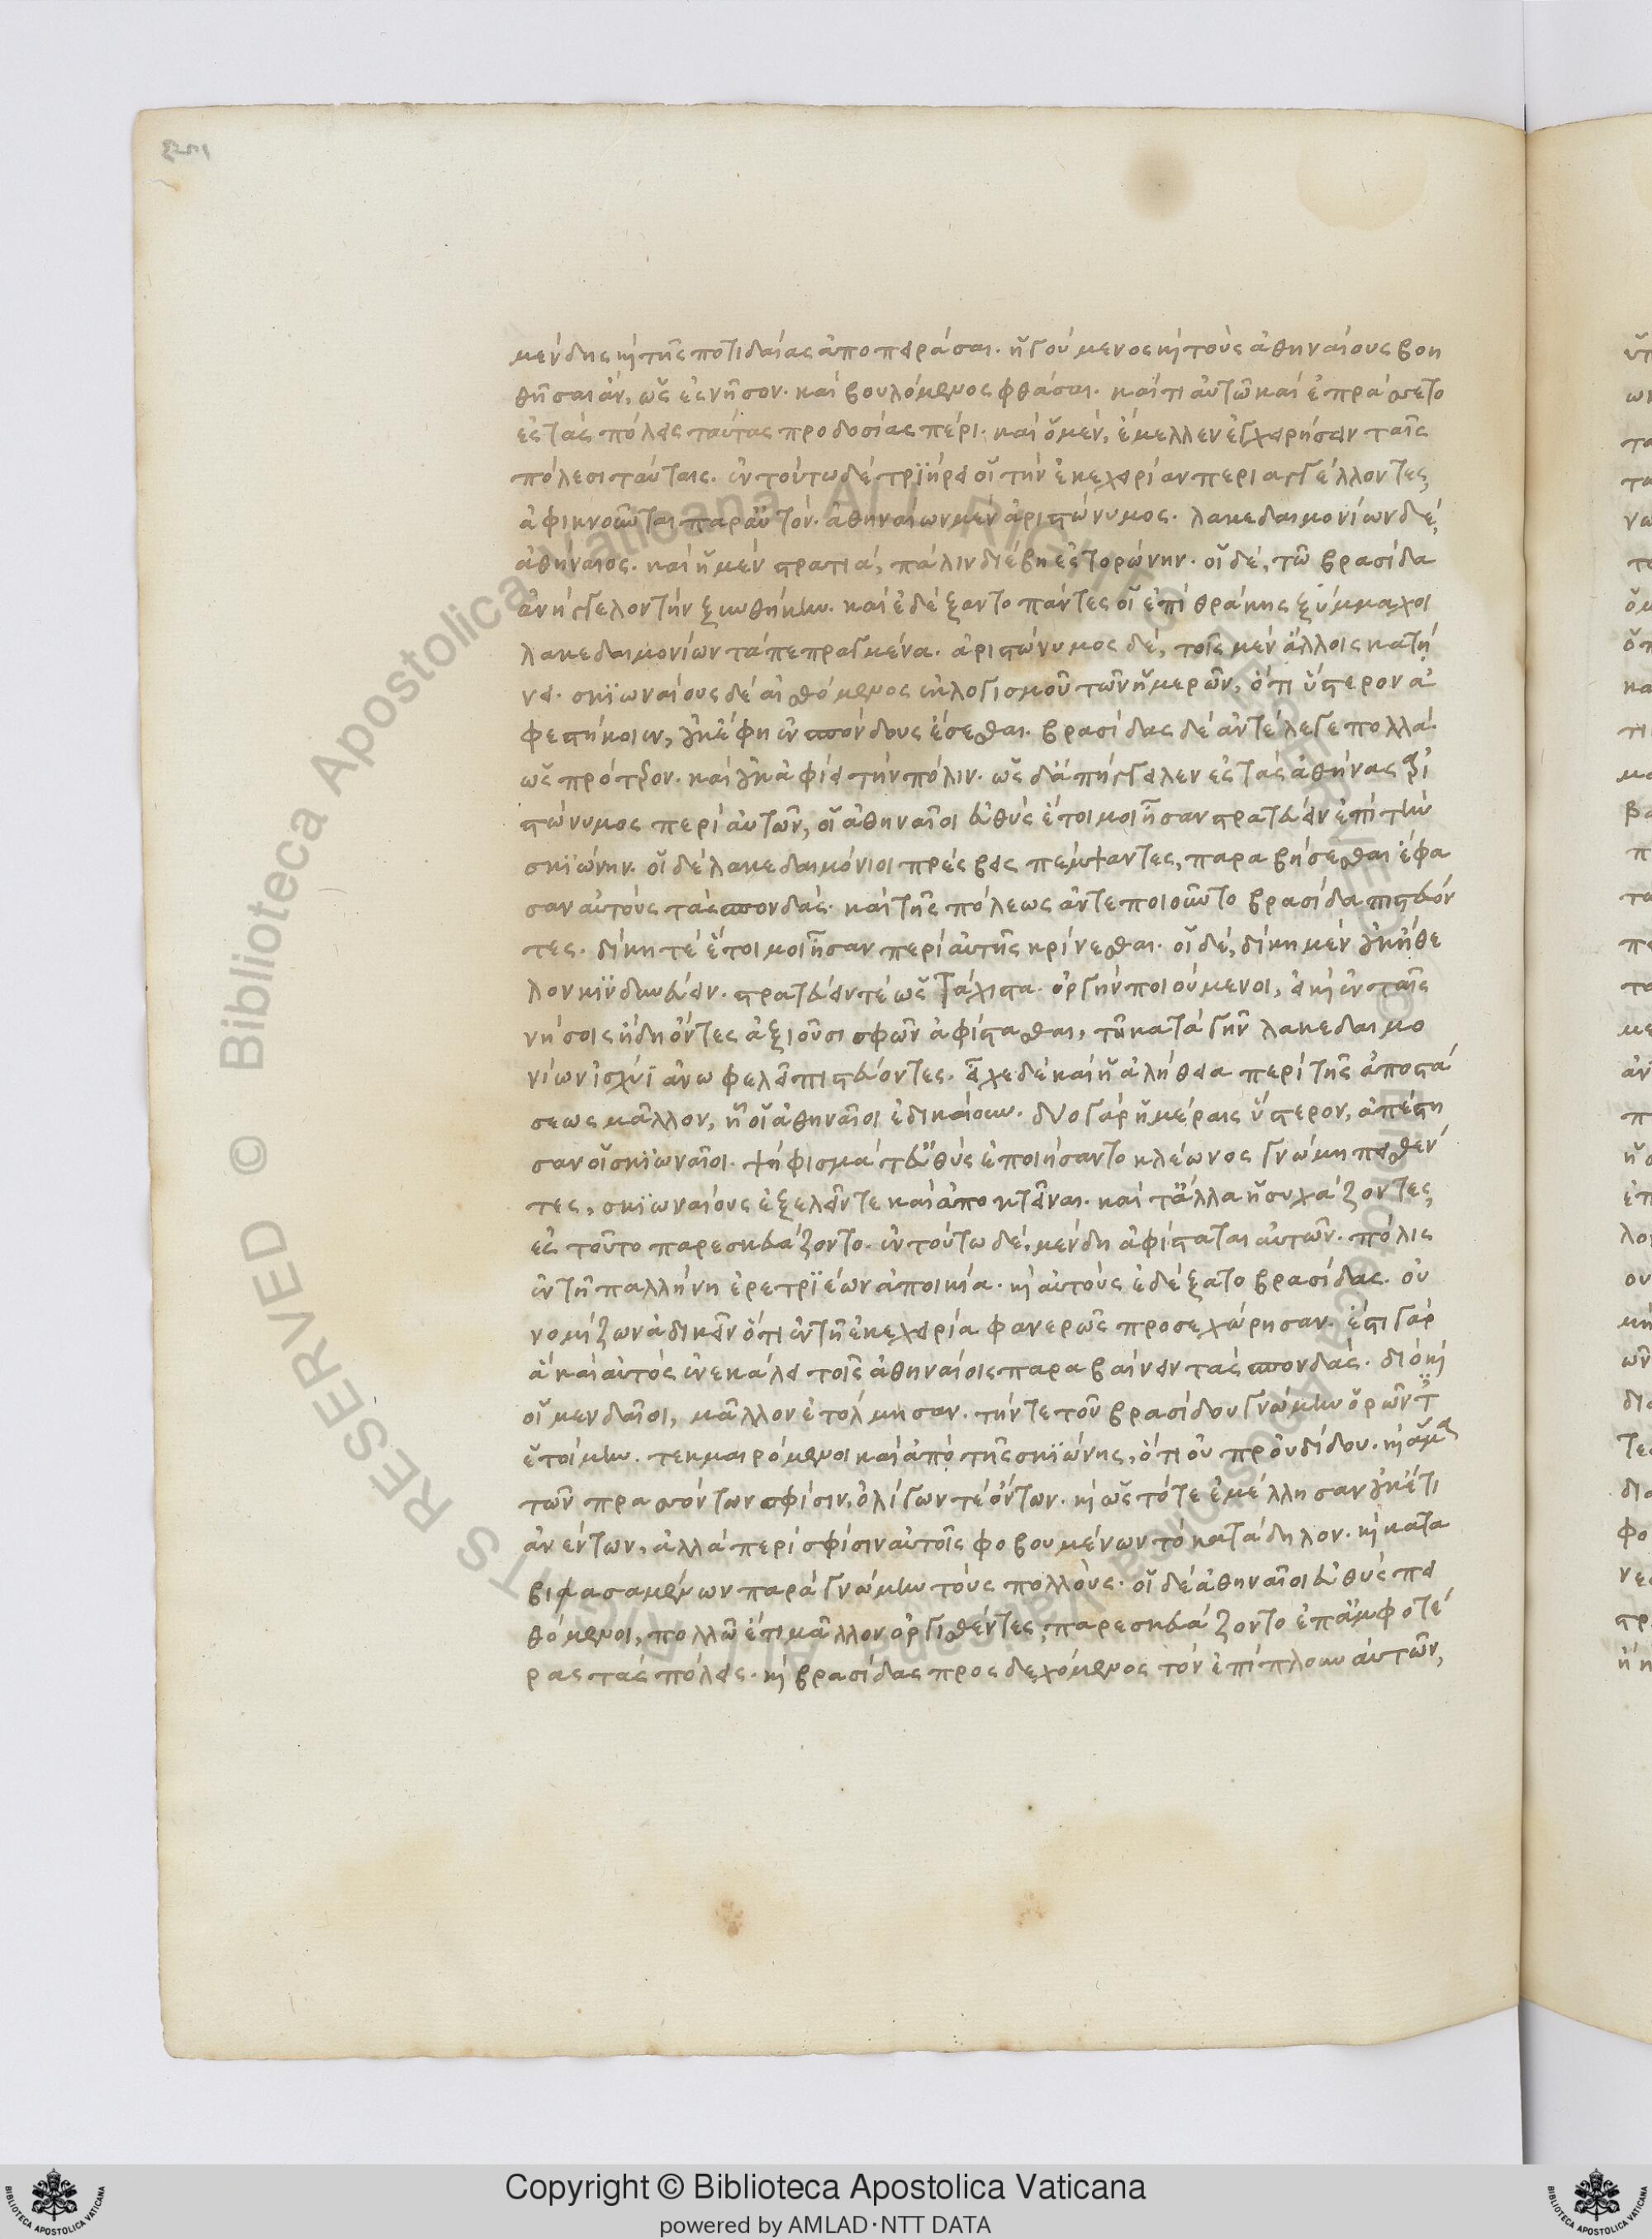 μένδης κὶ τῆς ποτιδαίας ἀποπειράσαι. ἡγούμενος κὶ τοὺς ἀθηναίους βοη
θῆσαι ἂν, ὡς ἐς νῆσον. καὶ βουλόμενος φθάσαι. καί τι αὐτῶ καὶ ἐπράσσετο
ἐς τὰς πόλεις ταύτας προδοσίας πέρι. καὶ ὁ μὲν, ἔμελλεν ἐγχειρήσειν ταῖς
πόλεσι ταύταις. ἐν τούτω δὲ τριήρει οἱ τὴν ἐκεχειρίαν περιαγγέλλοντες,
ἀφικνοῦνται παρ αὐτόν. ἀθηναίων μὲν ἀριστώνυμος. λακεδαιμονίων δὲ,
ἀθήναιος. καὶ ἡ μὲν στρατιὰ, πάλιν διέβη ἐς τορώνην. οἱ δὲ, τῶ βρασίδα
ἀνήγγελον τὴν ξυνθήκην. καὶ ἐδέξαντο πάντες οἱ ἐπὶ θράκης ξύμμαχοι
λακεδαιμονίων τὰ πεπραγμένα. ἀριστώνυμος δὲ, τοῖς μὲν ἄλλοις κατή
νει. σκιωναίους δὲ αἰσθόμενος ἐκ λογισμοῦ τῶν ἡμερῶν, ὅτι ὕστερον ἀ
φεστήκοιεν, οὐκ ἔφη ἐνσπόνδους ἔσεσθαι. βρασίδας δὲ ἀντέλεγε πολλὰ.
ὡς πρότερον. καὶ οὐκ ἀφίει τὴν πόλιν. ὡς δ ἀπήγγειλεν ἐς τὰς ἀθήνας ἀρι
στώνυμος περὶ αὐτῶν, οἱ ἀθηναῖοι εὐθὺς ἑτοῖμοι ἦσαν στρατεύειν ἐπὶ τὴν
σκιώνην. οἱ δὲ λακεδαιμόνιοι πρέσβεις πέμψαντες, παραβήσεσθαι ἔφα
σαν αὐτοὺς τὰς σπονδάς. καὶ τῆς πόλεως ἀντεποιοῦντο βρασίδα πιστεύον
τες. δίκη τὲ ἕτοιμοι ἦσαν περὶ αὐτῆς κρίνεσθαι. οἱ δὲ, δίκη μὲν οὐκ ἤθε
λον κινδυνεύειν. στρατεύειν τὲ ὡς τάχιστα. ὀργὴν ποιούμενοι, εἰ κὶ ἐν ταῖς
νήσοις ἤδη ὄντες ἀξιοῦσι σφῶν ἀφίστασθαι, τῆ κατὰ γῆν λακεδαιμο
νίων ἰσχύϊ ἀνωφελεῖ πιστεύοντες. εἶχε δὲ καὶ ἡ ἀλήθεια περὶ τῆς ἀποστά
σεως μᾶλλον, ἧ οἱ ἀθηναῖοι ἐδικαίουν. δύο γὰρ ἡμέραις ὕστερον, ἀπέστη
σαν οἱ σκιωναῖοι. ψήφισμά τ εὐθὺς ἐποιήσαντο κλέωνος γνώμη πεισθέν
τες, σκιωναίους ἐξελεῖν τε καὶ ἀποκτεῖναι. καὶ τἄλλα ἡσυχάζοντες,
ἐς τοῦτο παρεσκευάζοντο. ἐν τούτω δὲ, μένδη ἀφίσταται αὐτῶν. πόλις
ἐν τῆ παλλήνη ἐρετριέων ἀποικία. κὶ αὐτοὺς ἐδέξατο βρασίδας. οὐ
νομίζων ἀδικεῖν ὅτι ἐν τῆ ἐκεχειρία φανερῶς προσεχώρησαν. ἔστι γὰρ
ἃ καὶ αὐτὸς ἐνεκάλει τοῖς ἀθηναίοις παραβαίνειν τὰς σπονδάς. διὸ κὶ
οἱ μενδαῖοι, μᾶλλον ἐτόλμησαν. τήν τε τοῦ βρασίδου γνώμην ὁρῶντ
ἑτοίμην. τεκμαιρόμενοι καὶ ἀπὸ τῆς σκιώνης, ὅτι οὐ πρὀυδίδου. κὶ ἅμα
τῶν πρασσόντων σφίσιν, ὀλίγων τὲ ὄντων. κὶ ὡς τότε ἐμέλλησαν οὐκέτι
ἀνέντων, ἀλλὰ περὶ σφίσιν αὐτοῖς φοβουμένων τὸ κατάδηλον. κὶ κατα
βιασαμένων παρὰ γνώμην τοὺς πολλοὺς. οἱ δὲ ἀθηναῖοι εὐθὺς πει
θόμενοι, πολλῶ ἔτι μᾶλλον ὀργισθέντες, παρεσκευάζοντο ἐπ ἀμφοτέ
ρας τὰς πόλεις. κὶ βρασίδας προσδεχόμενος τὸν ἐπίπλουν αὐτῶν,
Biblioteca Apostolica Vaticana
Copyright © Biblioteca Apostolica Vaticana
powered by AMLAD·NTT DATA